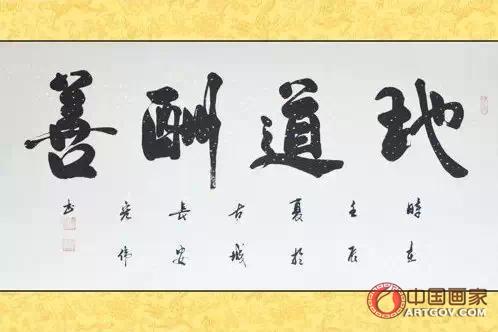 地道酬善
時在
壬辰
夏於
古城
長安
伟
书
中国画家
ARTGOV.COM